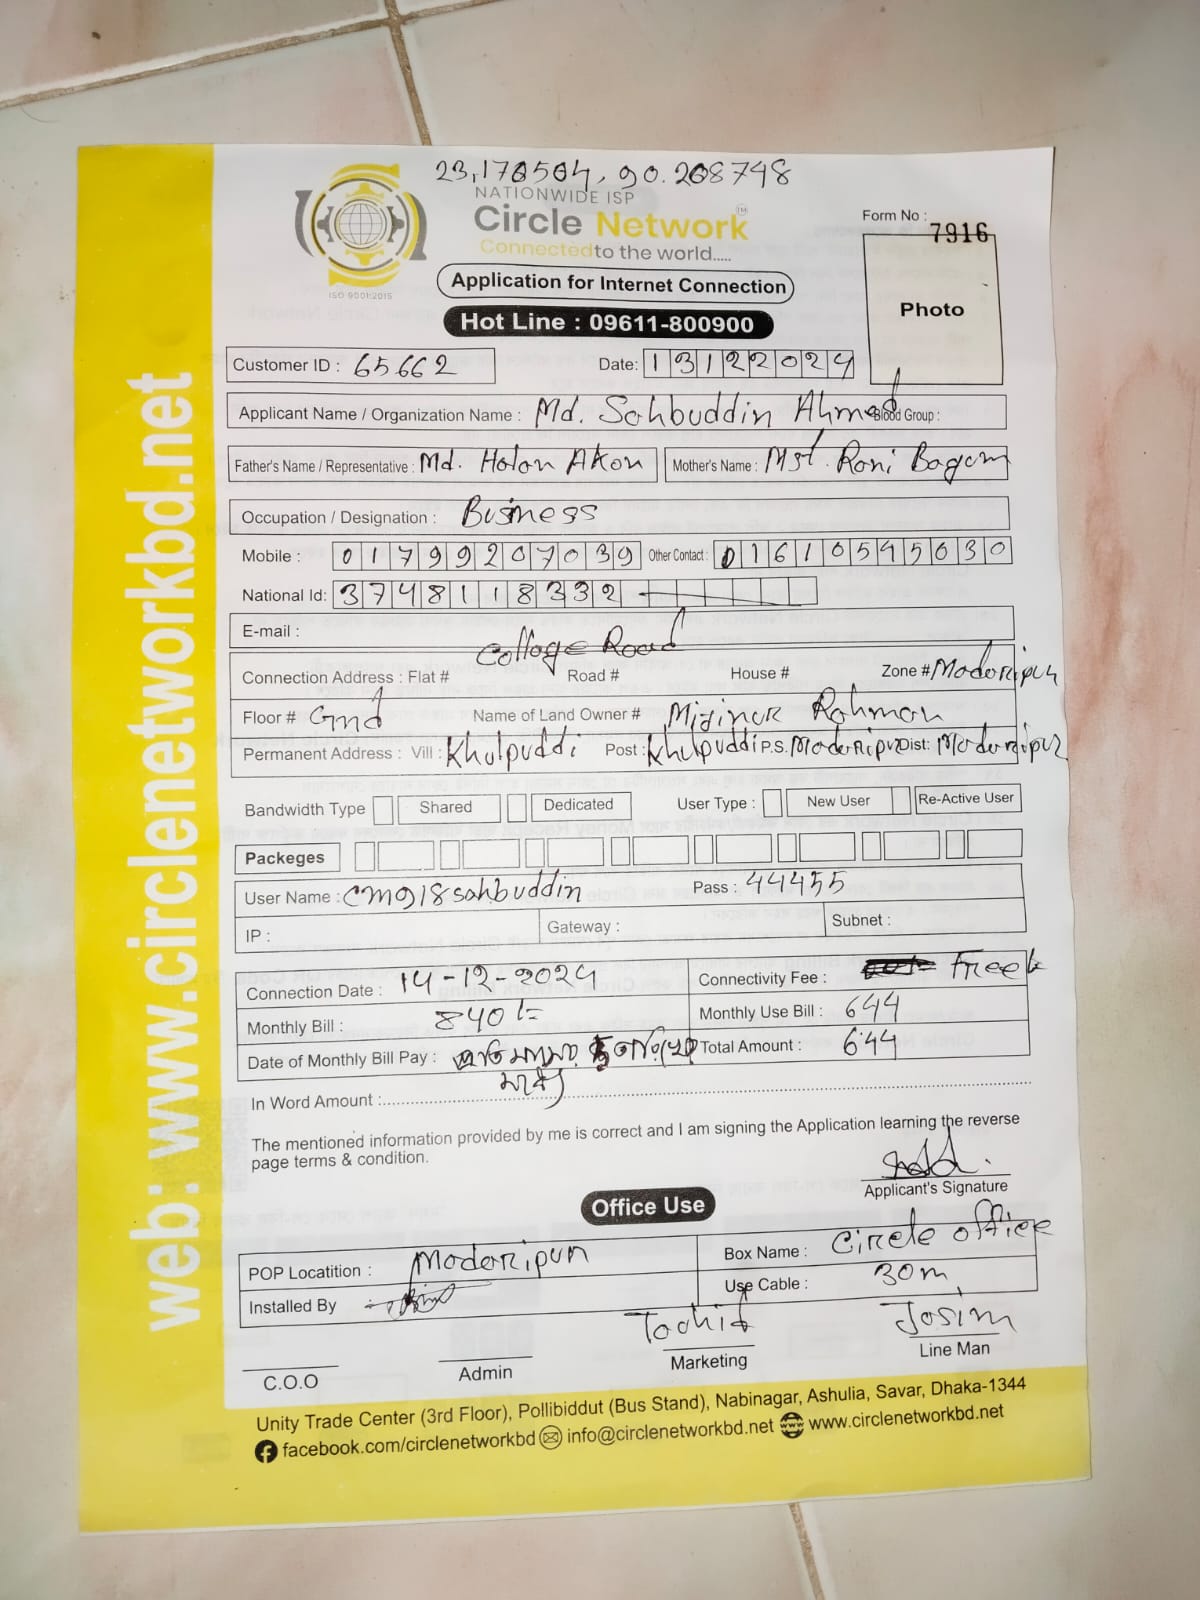 23,170504, 90.208748
NATIONWIDE ISP
Circle Network TM
Connected to the world.....
ISO 9001:2015
Form No : 7916
Photo
Application for Internet Connection
Hot Line : 09611-800900
Customer ID : 65662 Date: 13122024
Applicant Name / Organization Name : Md. Sahbuddin Ahmed Blood Group :
Father's Name / Representative : Md. Halan Akon Mother's Name : Mst. Rani Bagom
Occupation / Designation : Business
Mobile : 01799207039 Other Contact : 01610545030
National Id: 3748118332
E-mail :
College Road
Connection Address : Flat # Road # House # Zone # Madaripur
Floor # Gnd Name of Land Owner # Mijinur Rahman
Permanent Address : Vill : Khulpuddi Post : Khulpuddi P.S. Madaripur Dist: Madaripur
Bandwidth Type Shared Dedicated User Type : New User Re-Active User
Packeges
User Name : cm918sahbuddin Pass : 44455
IP : Gateway : Subnet :
Connection Date : 14-12-2024 Connectivity Fee : Free
Monthly Bill : 840/= Monthly Use Bill : 644
Date of Monthly Bill Pay : প্রতি মাসের তারিখের Total Amount : 644
মধ্যে
In Word Amount :
The mentioned information provided by me is correct and I am signing the Application learning the reverse
page terms & condition.
Applicant's Signature
Office Use
POP Locatition : Madaripur Box Name : Circle office
Installed By Use Cable : 30m
Tachif Josim
C.O.O Admin Marketing Line Man
Unity Trade Center (3rd Floor), Pollibiddut (Bus Stand), Nabinagar, Ashulia, Savar, Dhaka-1344
facebook.com/circlenetworkbd info@circlenetworkbd.net www.circlenetworkbd.net
web: www.circlenetworkbd.net